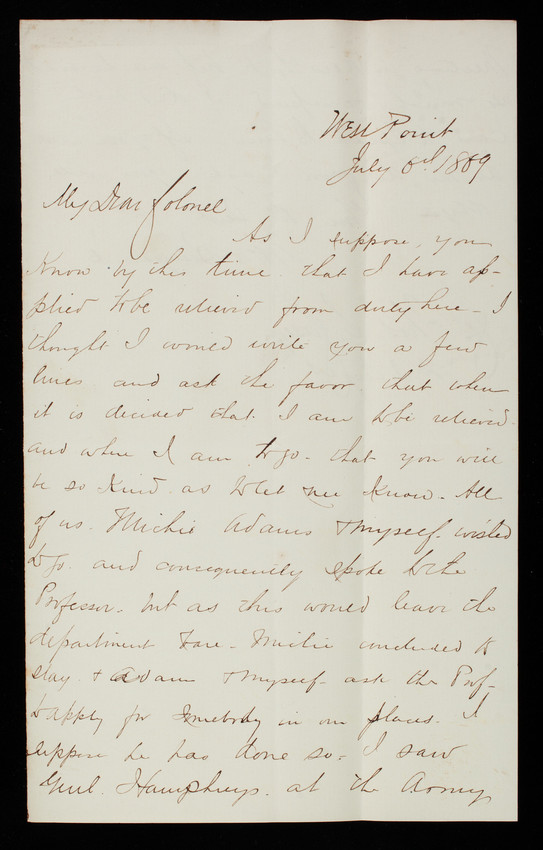 West Point
July 6d 1869
My Dear Colonel
As I suppose, you
Know by this time that I have ap-
plied to be relieved from duty here - I
thought I would write you a few
lines and ask the favor that when
it is decided that I am to be relieved
and where I am to go - that you will
be so kind as to let me know - All
of us. Michie Adams & myself - wished
to go. and consequently spoke to the
Professor - but as this would leave the
department - Michie concluded to
stay & Adam & myself - ask the Prof-
to apply for somebody in our places. I
suppose he has done so - I saw
Genl. Humphreys - at the Army